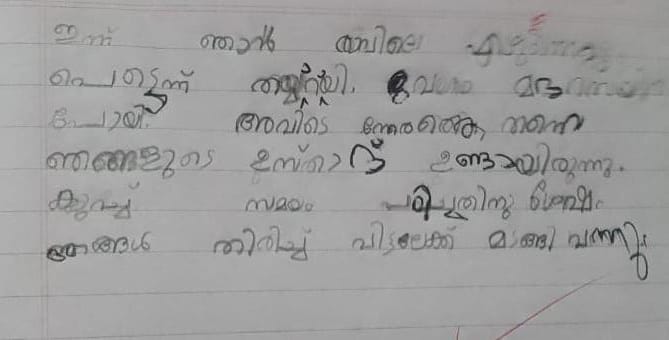 ഇന്ന് ഞാൻ രാവിലെ
പെട്ടെന്ന് തയ്യാറായി. മദ്രസയിൽ
പോയി. അവിടെ നേരത്തെ തന്നെ
ഞങ്ങളുടെ ഉസ്താദ് ഉണ്ടായിരുന്നു.
കുറച്ച് സമയം പഠിച്ചതിനു ശേഷം
ഞങ്ങൾ തിരിച്ച് വീട്ടിലേക്ക് മടങ്ങി വന്നു.